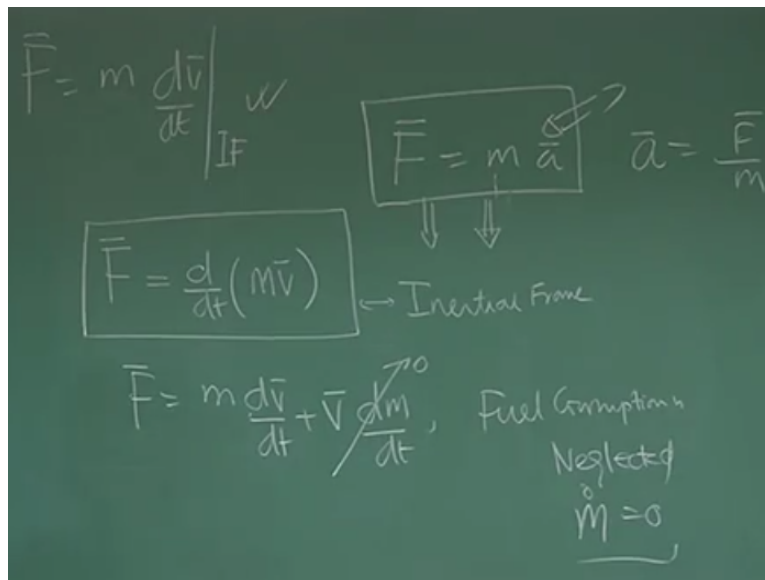 F̄ = m dv̄/dt |IF
F̄ = m ā
ā = F̄/m
F̄ = d/dt (mv̄)
↔ Inertial Frame
F̄ = m dv̄/dt + v̄ dm/dt → 0, Fuel Consumption
Neglected
ṁ = 0